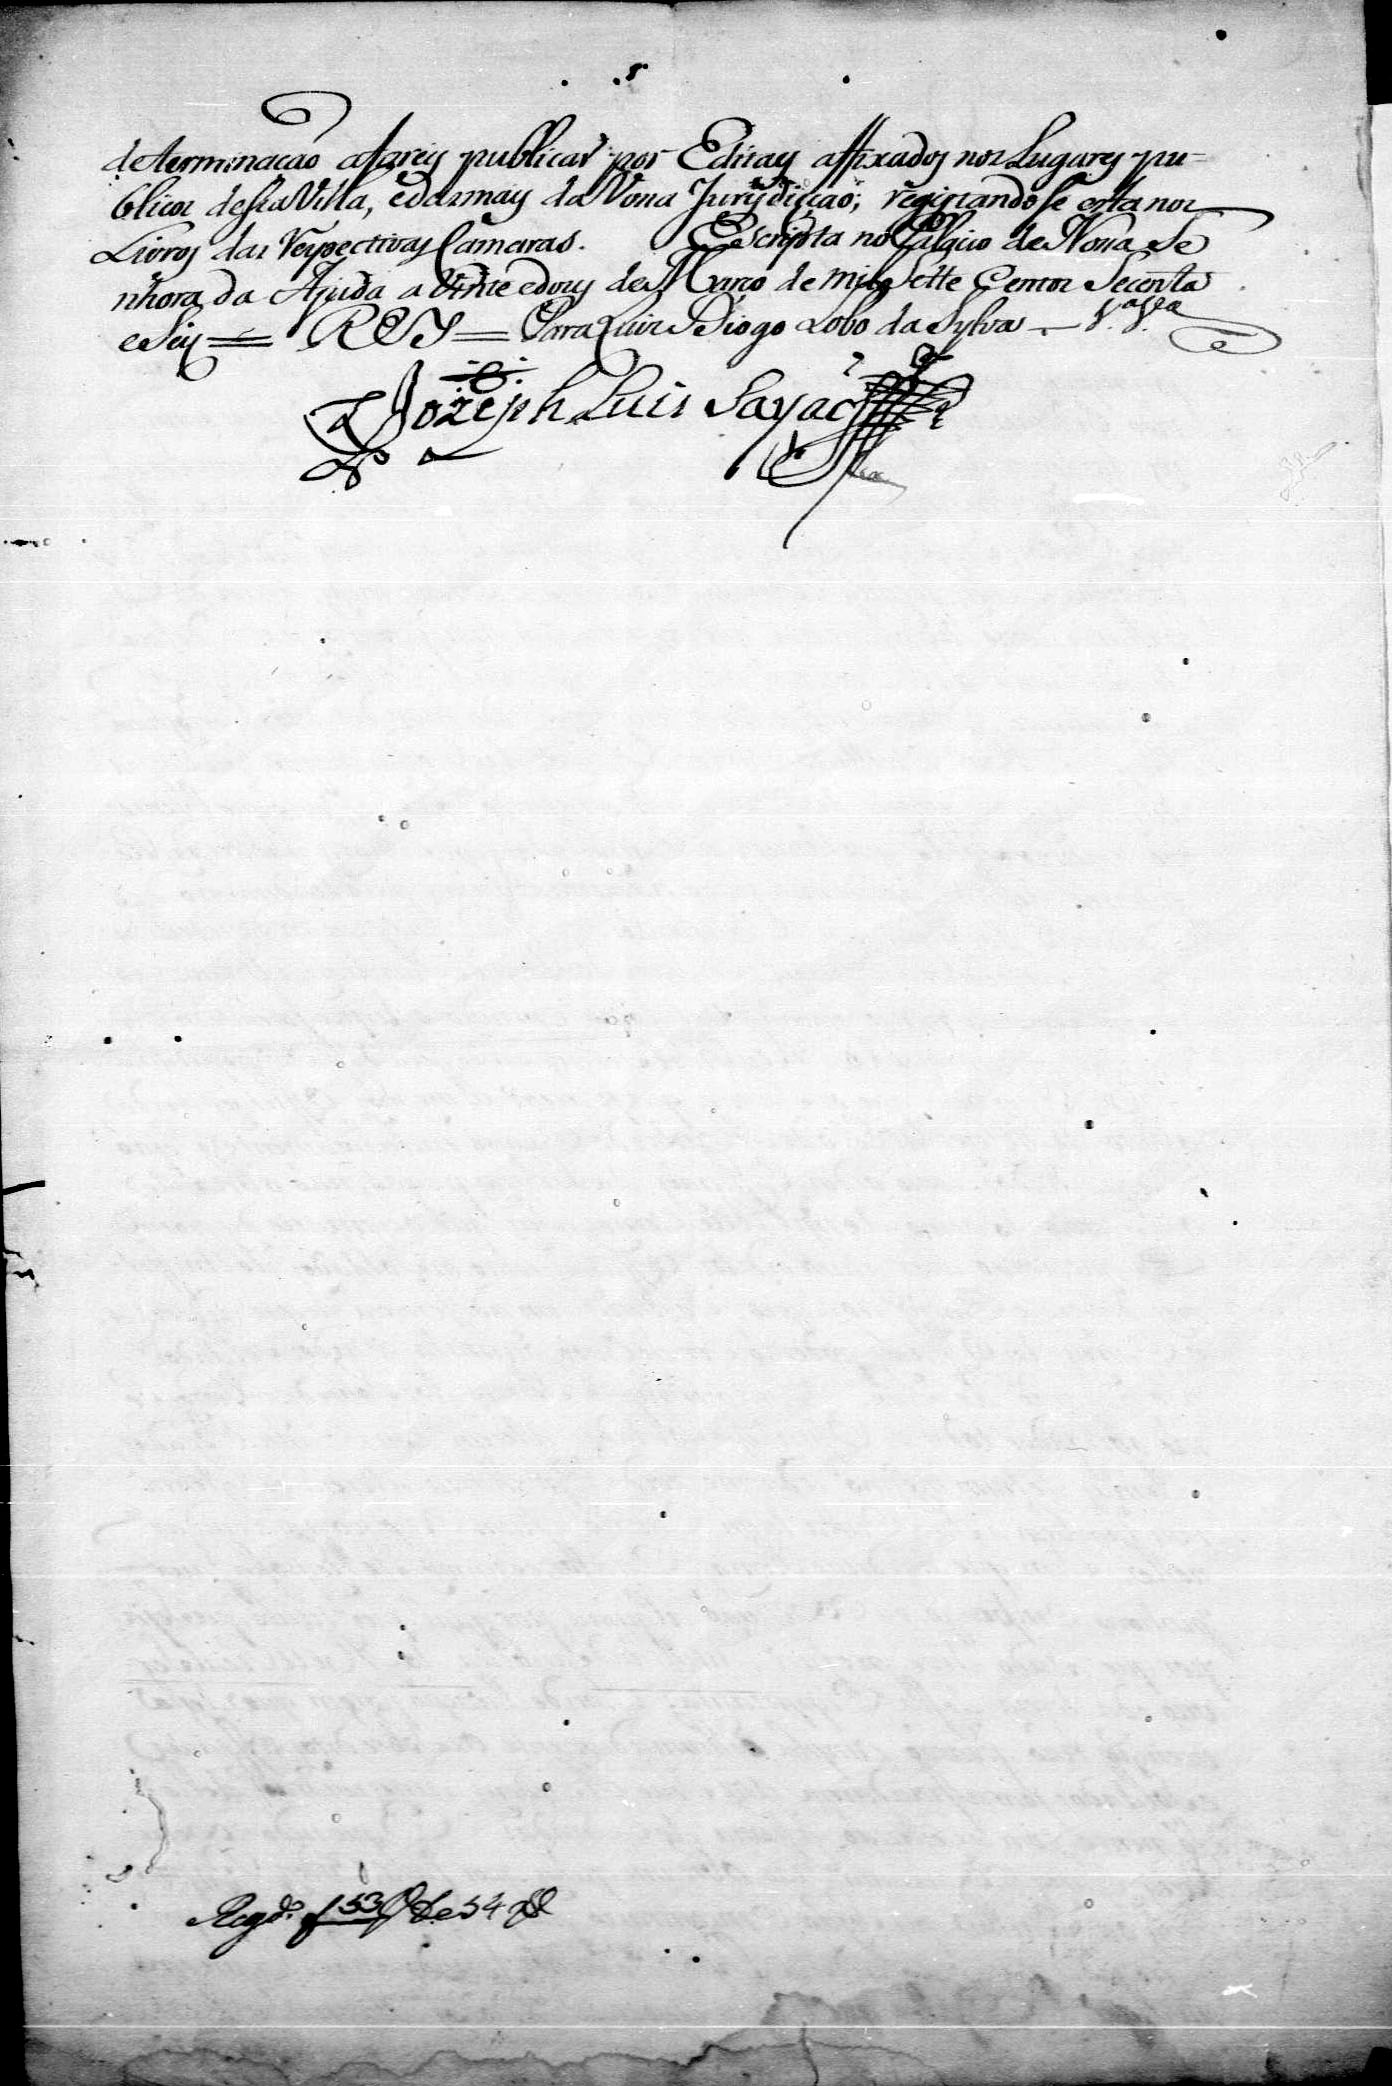 determinacao afareis publicar por Editays affixados nos Lugares pu-
blicos desta Villa, e dasmays da Vossa Jurysdicçaõ; registandose esta nos
Livros das Respectivas Camaras. Escripta no Palacio de Nossa Se
nhora da Ajuda a Vinte edous de Março de mil Sette Centos Secenta
eSeis = REY = Para Luis Diogo Lobo da Sylva
Jozeph Luis Sayaõ
Regdo. f 53 54